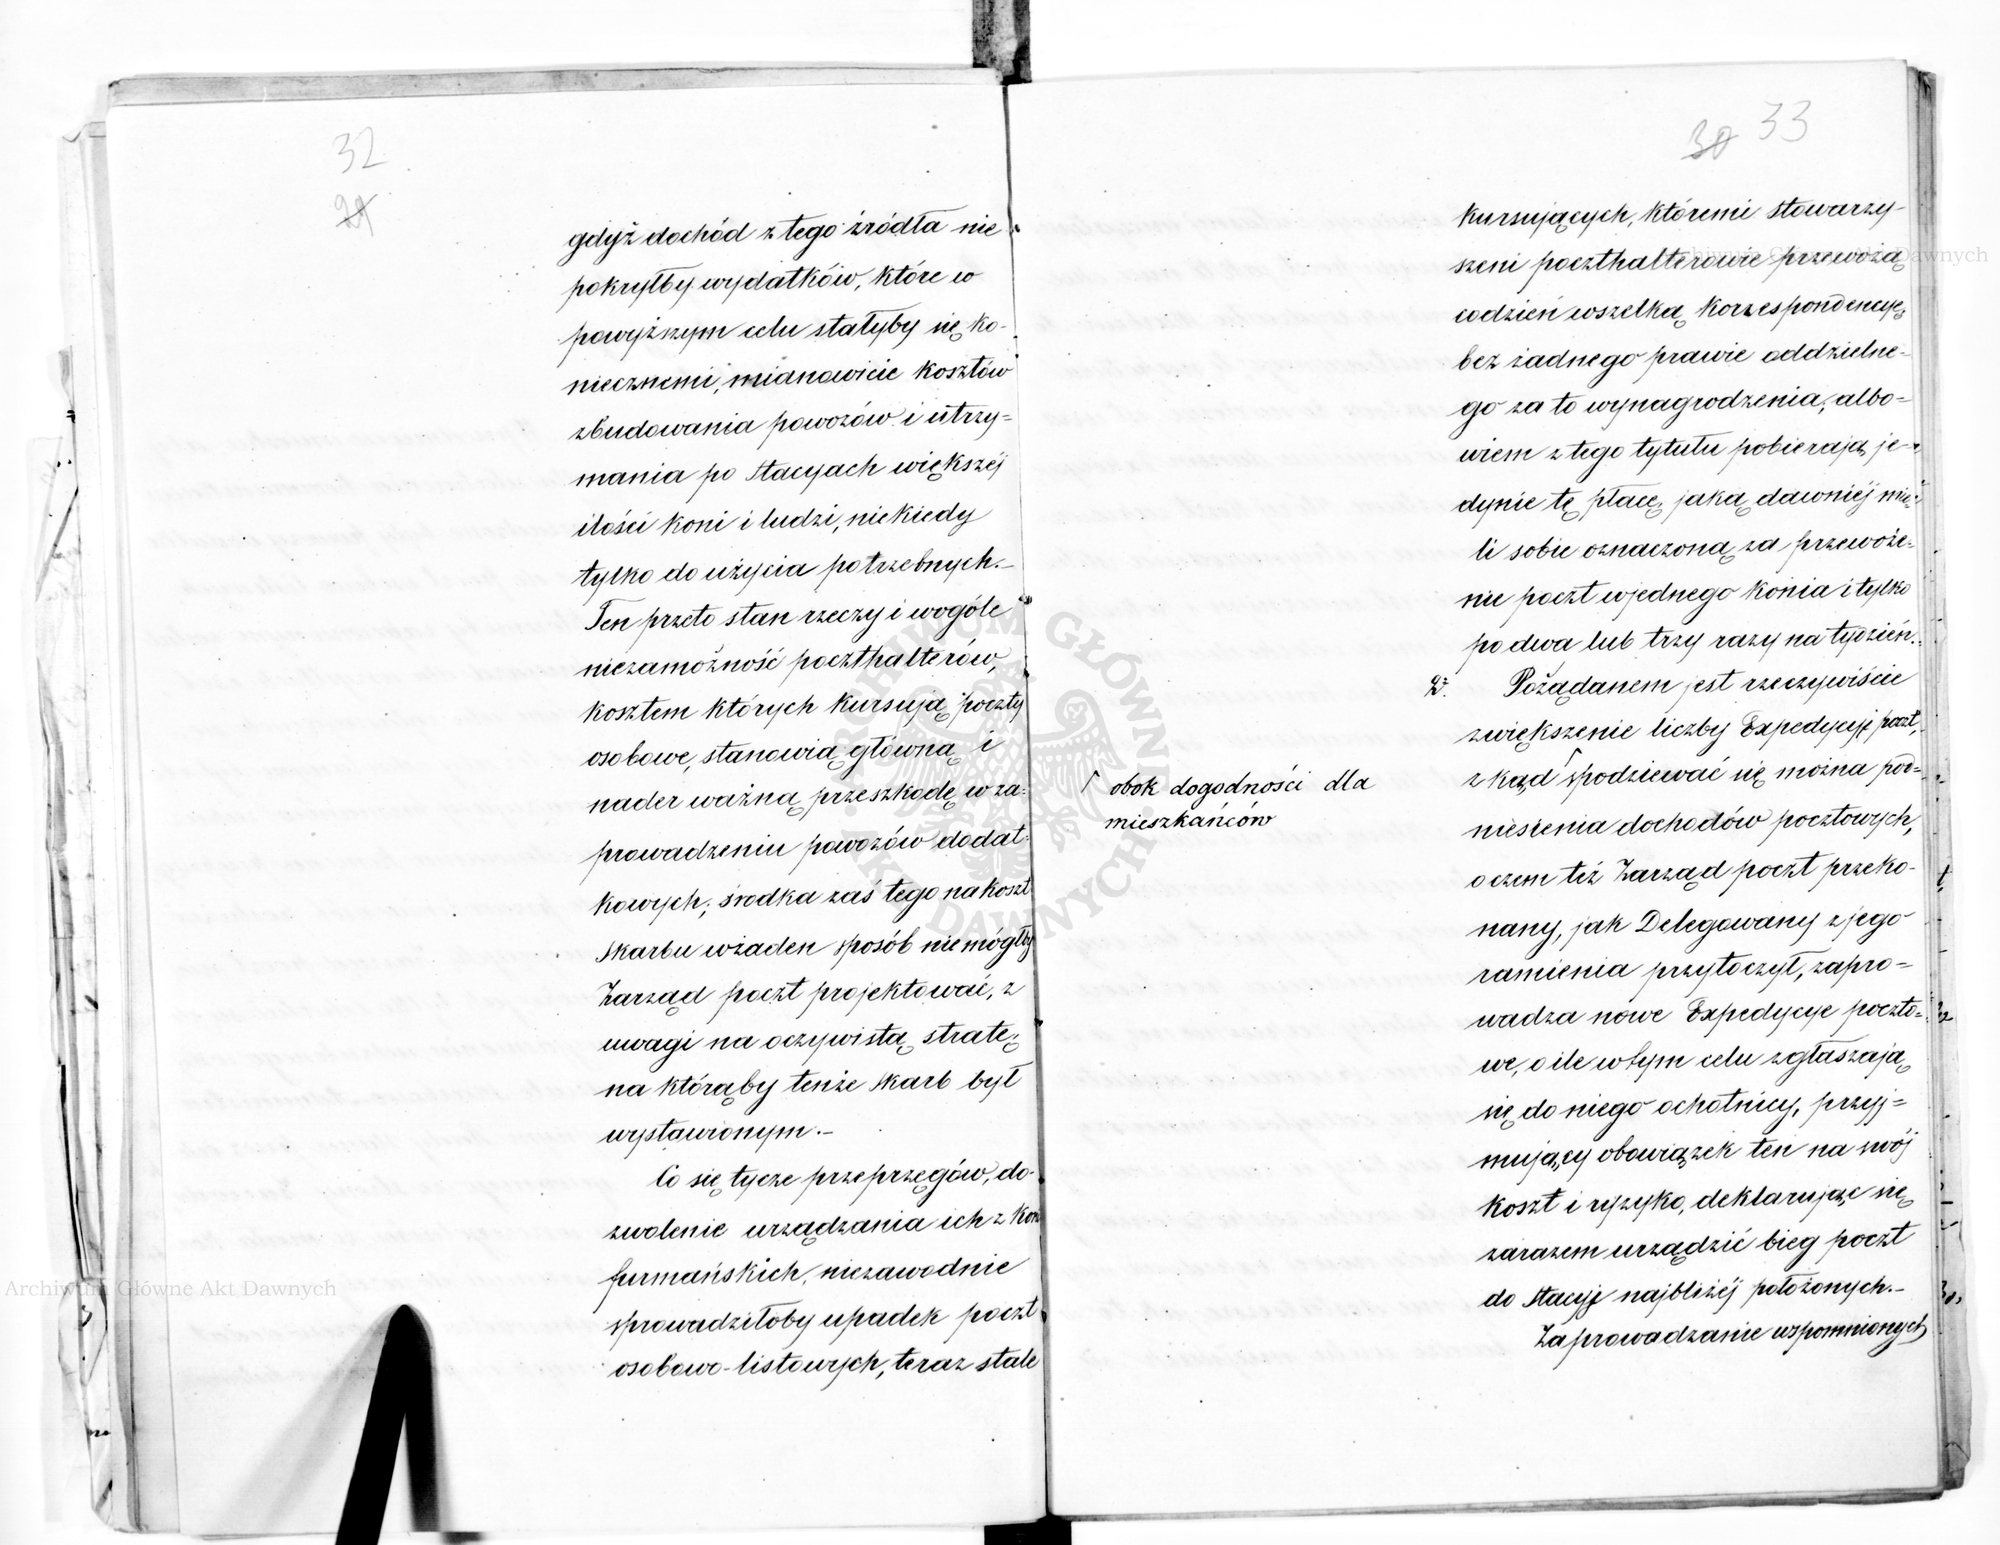 32
29
gdyż dochód z tego źródła nie
pokryłby wydatków, które w
powyższym celu stałyby się ko-
niecznemi, mianowicie kosztów
zbudowania powozów i utrzy-
mania po Stacyach większéj
ilości koni i ludzi, niekiedy
tylko do użycia potrzebnych.-
Ten przeto stan rzeczy i wogóle
niezamożność poczthalterów,
kosztem których kursują poczty
osobowe, stanowią główną i
nader ważną przeszkodę w za-
prowadzeniu powozów dodat-
kowych; środka zaś tego na koszt
Skarbu wżaden sposób niemógłby
Zarząd poczt projektować, z
uwagi na oczywistą stratę,
na którąby tenże Skarb był
wystawionym.-
Co się tycze przeprzęgów, do-
zwolenie urządzania ich z koni
furmańskich, niezawodnie
sprowadziłoby upadek poczt
osobowo-listowych, teraz stale
30 33
kursujących, któremi stowarzy-
szeni poczthalterowie przewożą
codzień wszelką korrespondencyę,
bez żadnego prawie oddzielne-
go za to wynagrodzenia, albo-
wiem z tego tytułu pobierają je-
dynie tę płacę, jaką dawniéj mie-
li sobie oznaczoną za przewoże-
nie poczt wjednego konia i tylko
po dwa lub trzy razy na tydzień.
2. Pożądanem jest rzeczywiście
zwiększenie liczby Expedycyj poczt,
zkąd ⌈ spodziewać się można pod-
niesienia dochodów pocztowych,
⌈ obok dogodności dla
mieszkańców
o czem też Zarząd poczt przeko-
nany, jak Delegowany z jego
ramienia przytoczył, zapro-
wadza nowe Expedycye poczto-
we, o ile w tym celu zgłaszają
się do niego ochotnicy, przyj-
mujący obowiązek ten na swój
koszt i ryzyko, deklarując się
zarazem urządzić bieg poczt
do Stacyj najbliżéj położonych.-
Zaprowadzanie wspomnionych
ARCHIWUM GŁÓWNE AKT DAWNYCH
Archiwum Główne Akt Dawnych
Archiwum Główne Akt Dawnych